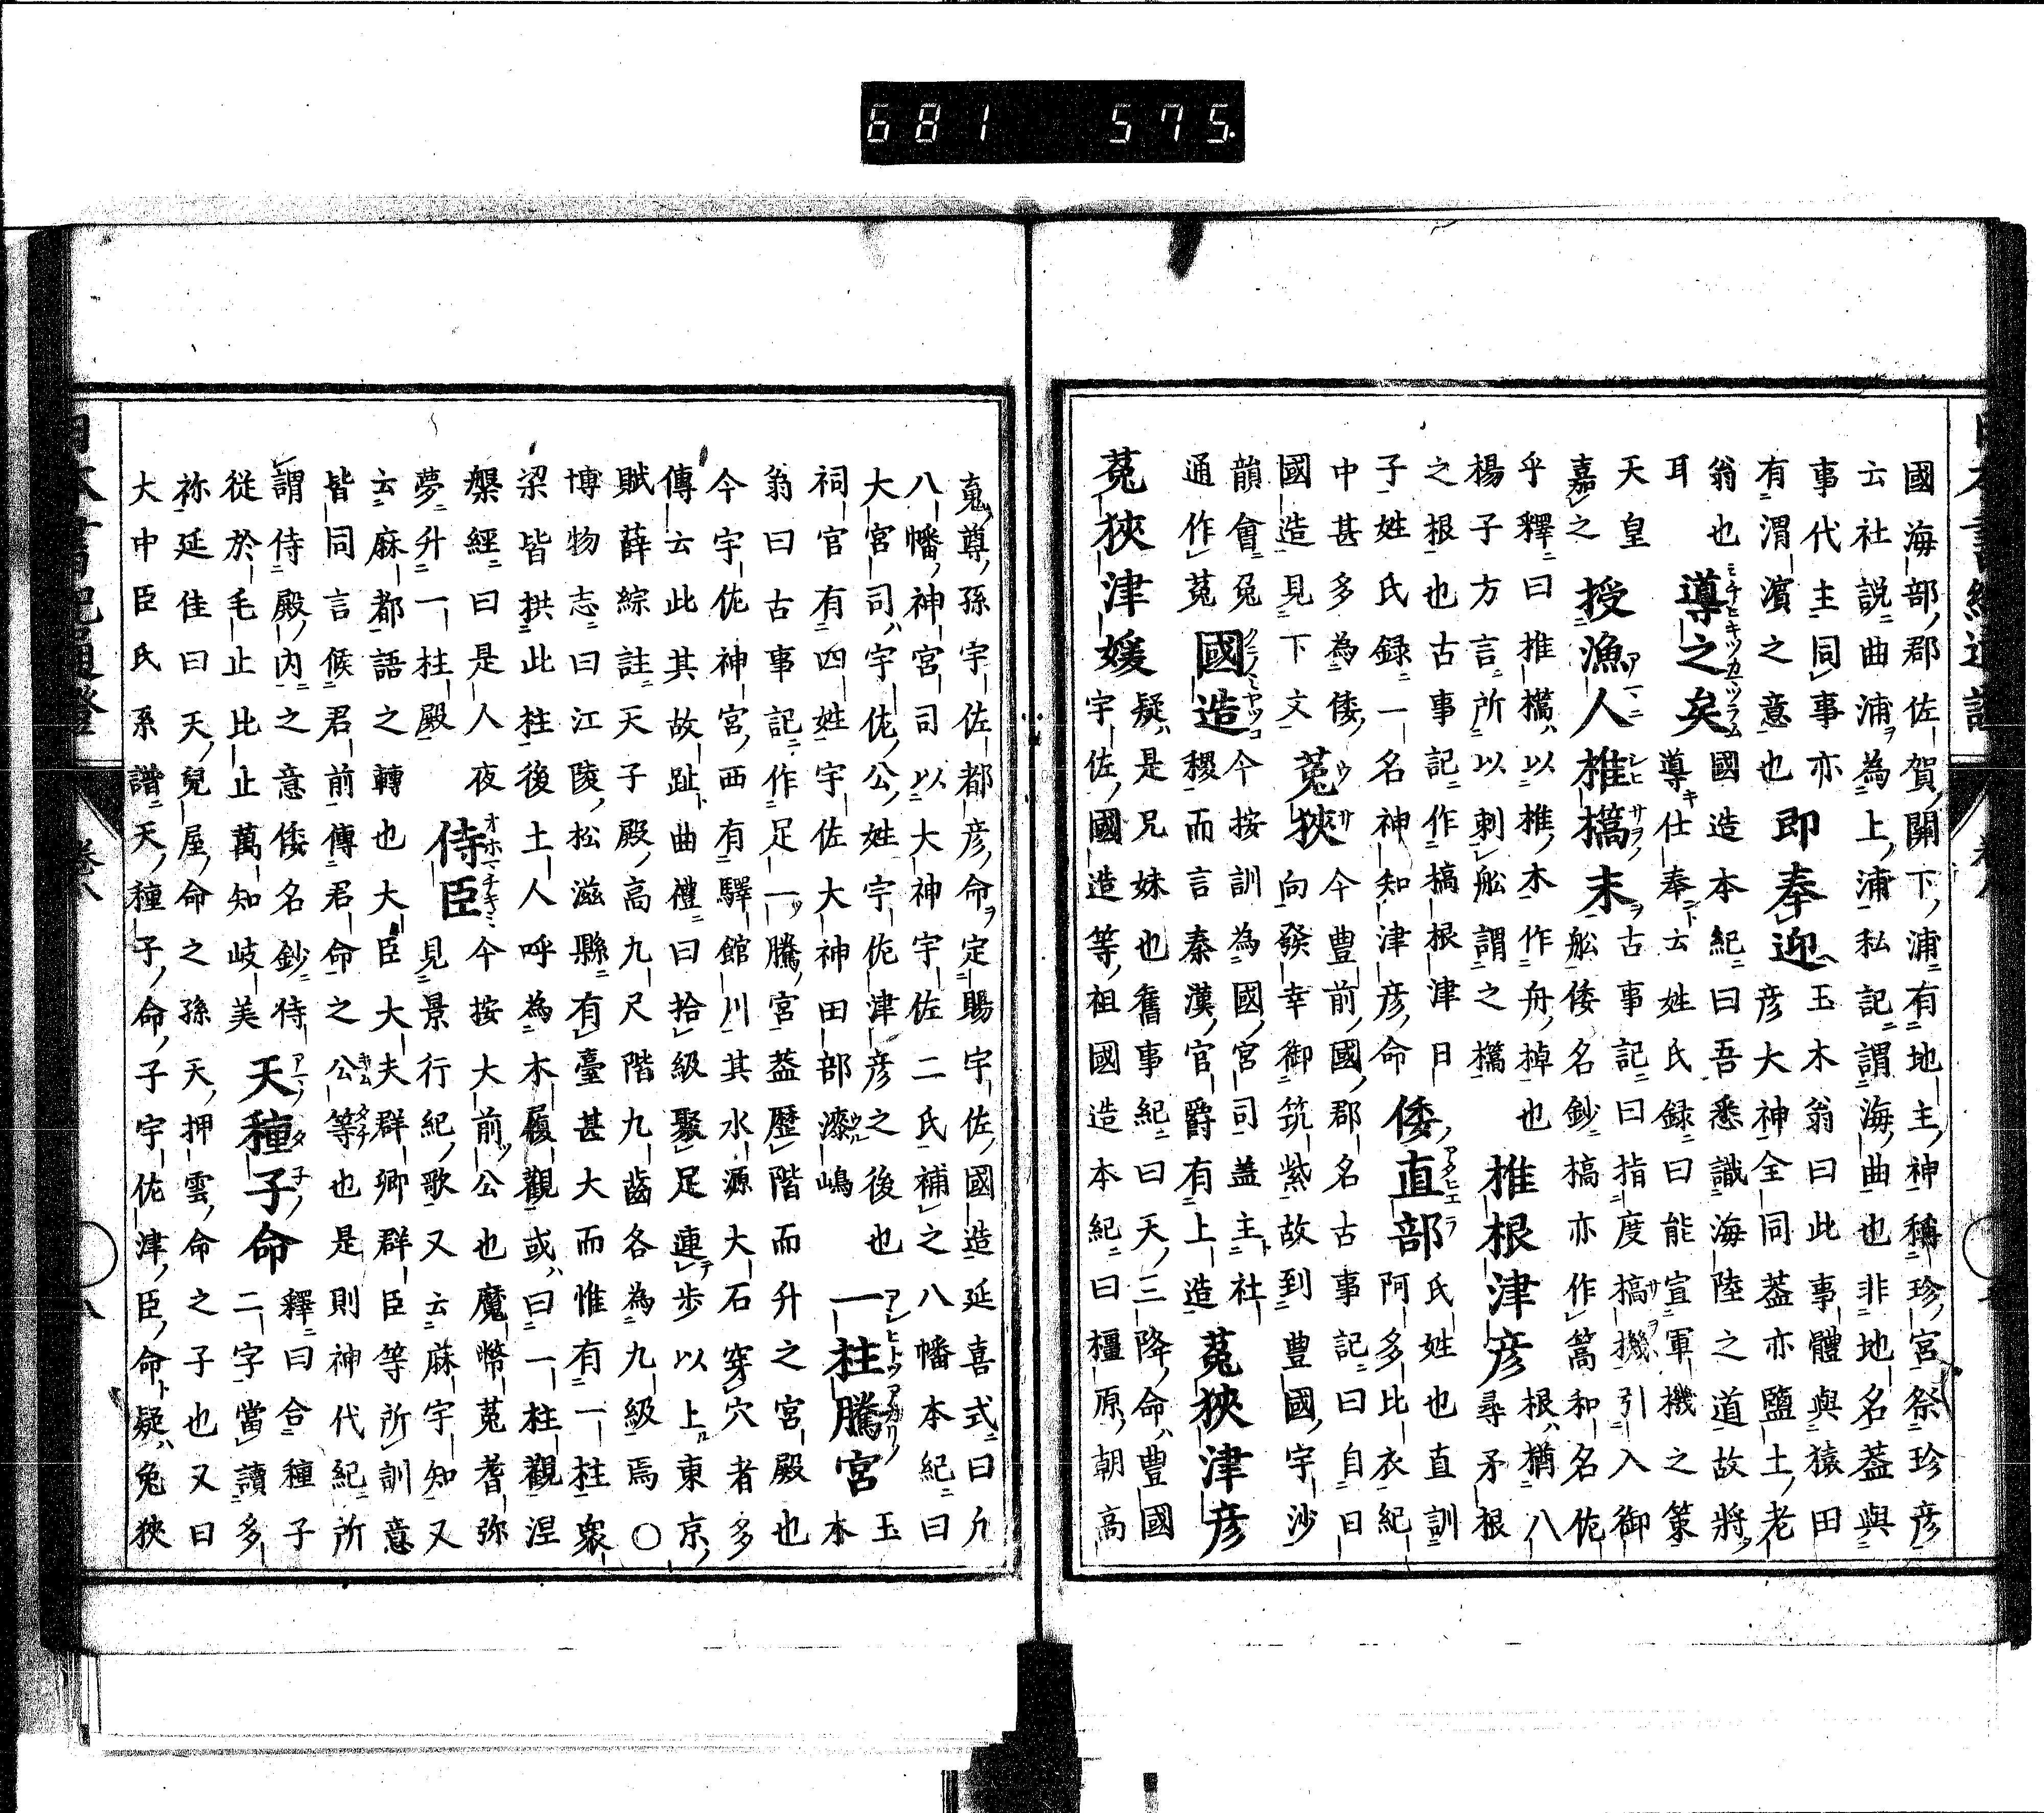 國海部郡佐賀關下浦有地主神稱珍宮祭珍彦
云社説曲浦為上浦私記謂海曲也非地名蓋與
事代主同事亦
有渭濱之意也
即奉迎
玉木翁曰此事體與猿田
彦大神全同蓋亦鹽土老
翁也
耳
導之矣
國造本紀曰吾悉識海陸之道故將
導仕奉云姓氏録曰能宣軍機之策
天皇
嘉之
授漁人椎檇末
古事記曰指度槁機引入御
舩倭名鈔槁亦作篙和名佐
乎釋曰推檇以推木作舟棹也
楊子方言所以刺舩謂之檇
椎根津彦
根猶八
尋矛根
之根也古事記作槁根津日
子姓氏録一名神知津彦命
倭直部
氏姓也直訓
阿多比衣紀
中甚多為倭
國造見下文
菟狹
今豊前國郡名古事記曰自日
向發幸御筑紫故到豊國宇沙
韻會兔
通作菟
國造
今按訓為國宮司蓋主社
稷而言秦漢官爵有上造
菟狹津彦
菟狹津媛
疑是兄妹也舊事紀曰天三降命豊國
宇佐國造等祖國造本紀曰橿原朝高
䰟尊孫宇佐都彦命定賜宇佐國造延喜式曰凡
八幡神宮司以大神宇佐二氏補之八幡本紀曰
大宮司宇佐公姓宇佐津彦之後也
祠官有四姓宇佐大神田部漆嶋
一柱騰宮
玉
本
翁曰古事記作足一騰宮蓋歴階而升之宮殿也
今宇佐神宮西有驛館川其水源大石穿穴者多
傳云此其故趾曲禮曰拾級聚足連歩以上東京
賦薛綜註天子殿高九尺階九齒各為九級焉〇
博物志曰江陵松滋縣有臺甚大而惟有一柱衆
梁皆拱此柱後土人呼為木履觀或曰一柱觀涅
槃經曰是人夜
夢升一柱殿
侍臣
今按大前公也魔幣菟耆弥
見景行紀歌又云麻宇知又
云麻都語之轉也大臣大夫群卿群臣等所訓意
皆同言候君前傳君命之公等也是則神代紀所
謂侍殿内之意倭名鈔侍
従於毛止比止萬知岐美
天種子命
釋曰合種子
二字當讀多
祢延佳曰天兒屋命之孫天押雲命之子也又曰
大中臣氏系譜天種子命子宇佐津臣命疑兔狹
卷八
八
681 575.